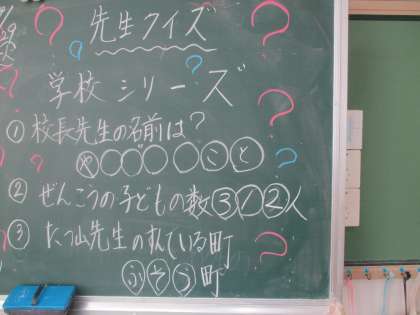 先生クイズ
学校シリーズ
① 校長先生の名前は?
や〇〇゛〇〇こと
② ぜんこうの子どもの数③①②人
③ たつ山先生のすんでいる町
ふそう町